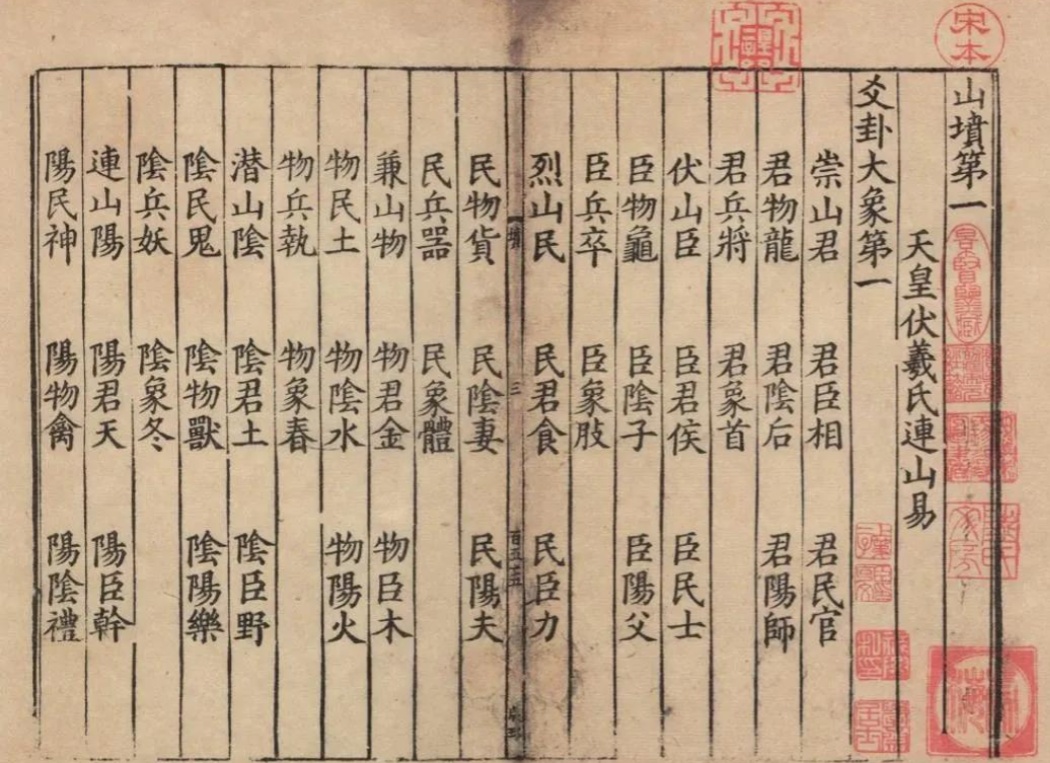 宋本
山墳第一
天皇伏羲氏連山易
爻卦大象第一
崇山君 君臣相 君民官
君物龍 君陰后 君陽師
君兵將 君象首
伏山臣 臣君侯 臣民士
臣物龜 臣陰子 臣陽父
臣兵卒 臣象股
烈山民 民君食 民臣力
墳 三
民物貨 民陰妻 民陽夫
民兵器 民象體
兼山物 物君金 物臣木
物民土 物陰水 物陽火
物兵執 物象春
潜山陰 陰君土 陰臣野
陰民鬼 陰物獸 陰陽樂
陰兵妖 陰象冬
連山陽 陽君天 陽臣幹
陽民神 陽物禽 陽陰禮